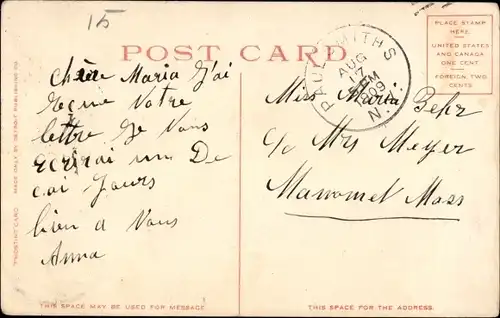 15
POST CARD
PLACE STAMP
HERE
UNITED STATES
AND CANADA
ONE CENT
FOREIGN TWO
CENTS
PAUL SMITHS
N.Y.
AUG
17
1909
Chère Maria J'ai
Reçue Votre
lettre Je Vous
Ecrirai un De
cai Jours
bien a Vous
Anna
Miss Maria Behr
c/o Mrs Meyer
Manomet Mass
"PHOSTINT CARD"
MADE ONLY BY DETROIT PUBLISHING CO.
THIS SPACE MAY BE USED FOR MESSAGE
THIS SPACE FOR THE ADDRESS.